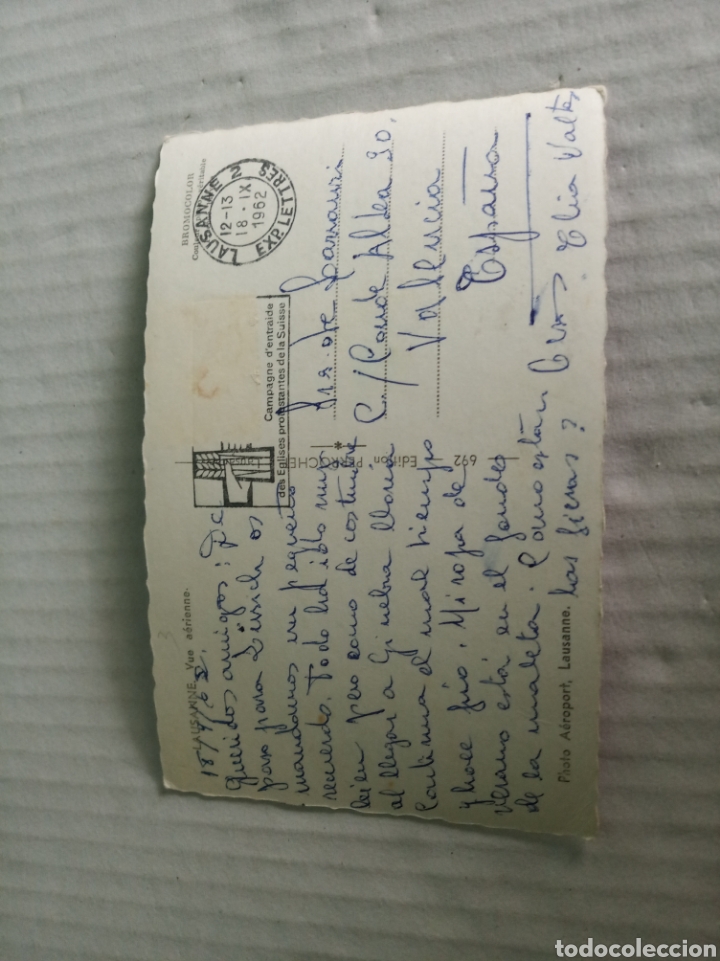 LAUSANNE. Vue aérienne.
18/9/62.
Queridos amigos: De
paso para Zurich os
mandamos un pequeño
recuerdo. Todo ha ido muy
bien pero como de costumbre
al llegar a Ginebra llovia
Continua el mal tiempo
y hace frio. Mi ropa de
verano está en el fondo
de la maleta. Como están
las fieras?
Photo Aéroport, Lausanne.
692 Edition PERROCHET
*
BROMOCOLOR
LAUSANNE 2
12-13
18-IX
1962
EXP. LETTRES
Campagne d'entraide
des Eglises protestantes de la Suisse
Sres. de
C/Conde Altea 30.
Valencia
España
Elia
todocoleccion.net